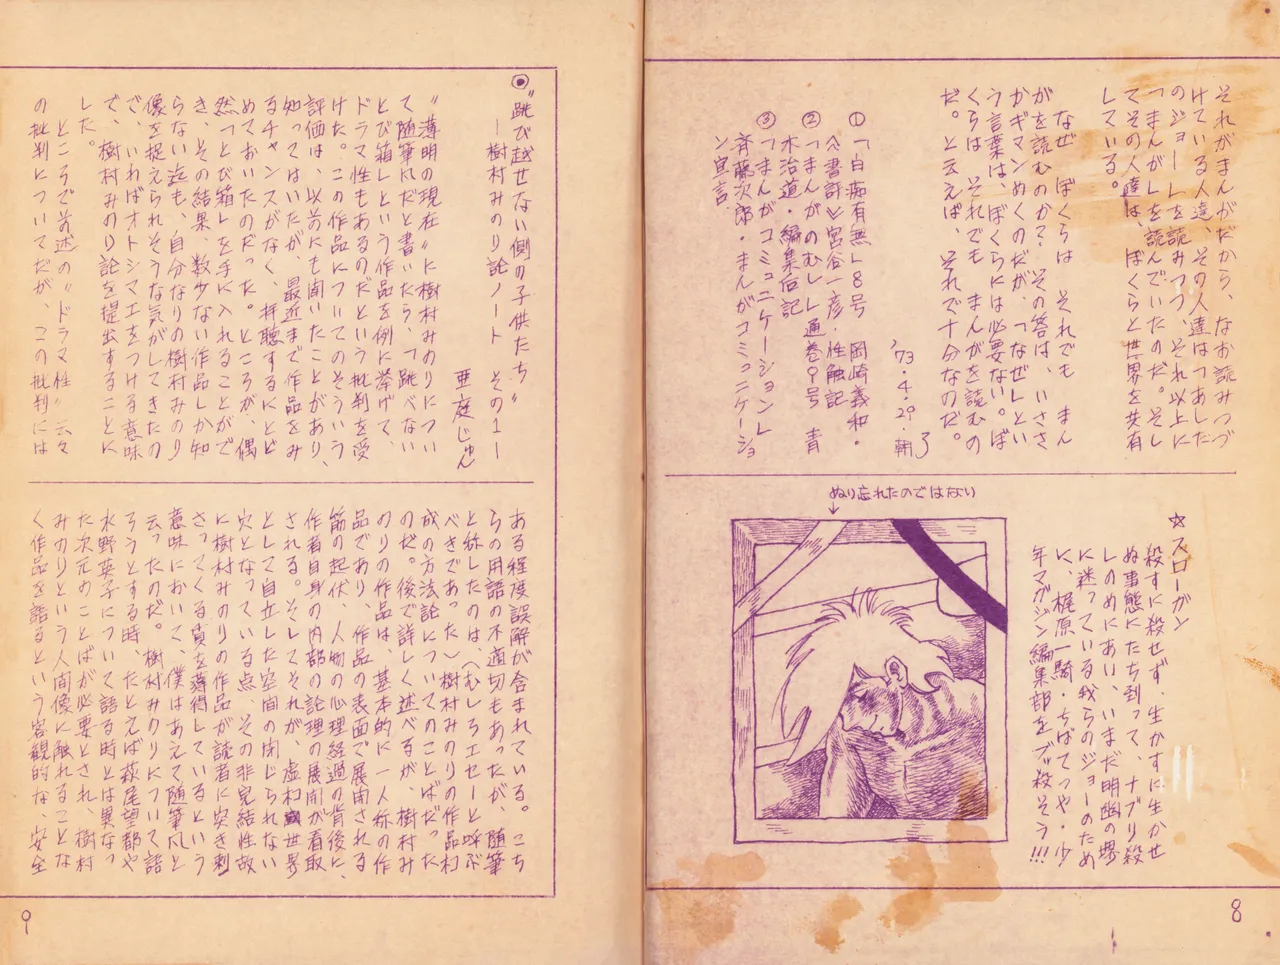 それがまんがだから、なお読みつづ
けている人達、その人達は「あした
のジョー」を読みつつ、それ以上に
「まんが」を読んでいたのだ。そし
てその人達は、ぼくらと世界を共有
している。
なぜ ぼくらは それでも まん
がを読むのか？ その答は、いささ
かギマンめくのだが、「なぜ」とい
う言葉は、ぼくらには必要ない。ぼ
くらは それでも まんがを読むの
だ。と云えば、それで十分なのだ。
'73・4・29・朝 了
①「白痴有無」8号 岡崎義和・
≪書評≫宮谷一彦・性触記
②「まんがのむし」通巻9号 青
木治道・編集后記
③「まんがコミュニケーション」
斉藤次郎・まんがコミュニケーショ
ン宣言
☆スローガン
殺すに殺せず、生かすに生かせ
ぬ事態にたち到って、ナブリ殺
しのめにあい、いまだ明幽の堺
に迷っている我らのジョーのため
に、梶原一騎・ちばてつや・少
年マガジン編集部をブッ殺そう!!!
ぬり忘れたのではない
8
◉〝跳び越せない側の子供たち〟
―樹村みのり論ノート その1―
亜庭じゅん
〝薄明の現在〟に樹村みのりについ
て随筆風だと書いたら、「跳べない
とび箱」という作品を例に挙げて、
ドラマ性もあるのだという批判を受
けた。この作品についてのそういう
評価は、以前にも聞いたことがあり、
知ってはいたが、最近まで作品をみ
るチャンスがなく、拝聴するにとど
めておいたのだった。ところが、偶
然「とび箱」を手に入れることがで
き、その結果、数少ない作品しか知
らない迄も、自分なりの樹村みのり
像を捉えられそうな気がしてきたの
で、いわばオトシマエをつける意味
で、樹村みのり論を提出することに
した。
ところで前述の〝ドラマ性〟云々
の批判についてだが、この批判には
ある程度誤解が含まれている。こち
らの用語の不適切もあったが、随筆
と称したのは、（むしろエセーと呼ぶ
べきであった）樹村みのりの作品構
成の方法論についてのことばだった
のだ。後で詳しく述べるが、樹村み
のりの作品は、基本的に一人称の作
品であり、作品の表面で展開される
筋の起伏、人物の心理経過の背後に、
作者自身の内部の論理の展開が看取
される。そしてそれが、虚構世界
として自立した空間の閉じられない
穴となっている点、その非完結性故
に樹村みのりの作品が読者に突き刺
さってくる質を獲得しているという
意味において、僕はあえて随筆風と
云ったのだ。樹村みのりについて語
ろうとする時、たとえば萩尾望都や
水野英子について語る時とは異なっ
た次元のことばが必要とされ、樹村
みのりという人間像に触れることな
く作品を語るという客観的な、安全
9